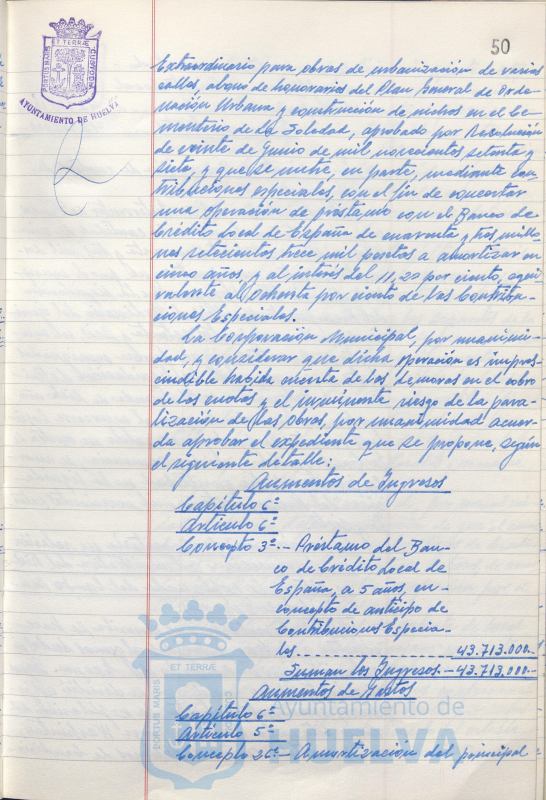 50
PORTUS MARIS ET TERRÆ CUSTODIA
AYUNTAMIENTO DE HUELVA
Extraordinario para obras de urbanización de varias
calles, abono de honorarios del Plan General de Orde-
nación Urbana y construcción de nichos en el Ce-
menterio de La Soledad, aprobado por Resolución
de veinte de Junio de mil novecientos setenta y
siete, y que se nutre, en parte, mediante con-
tribuciones especiales, con el fin de concertar
una operación de préstamo con el Banco de
Crédito Local de España de cuarenta y tres millo-
nes setecientas trece mil pesetas a amortizar en
cinco años, y al interés del 11,20 por ciento, equi-
valente al ochenta por ciento de las Contribu-
ciones Especiales.
La Corporación Municipal, por unanimi-
dad, y considerar que dicha operación es impres-
cindible habida cuenta de las demoras en el cobro
de las cuotas y el inminente riesgo de la para-
lización de las obras, por unanimidad acuer-
da aprobar el expediente que se propone, según
el siguiente detalle:
Aumentos de Ingresos
Capítulo 6º
Artículo 6º
Concepto 3º.- Préstamo del Ban-
co de Crédito Local de
España, a 5 años, en
concepto de anticipo de
Contribuciones Especia-
les. 43.713.000.-
Suman los Ingresos.- 43.713.000.-
Aumentos de Gastos
Capítulo 6º
Artículo 5º
Concepto 26º.- Amortización del principal
PORTUS MARIS ET TERRÆ CUSTODIA
Ayuntamiento de
HUELVA